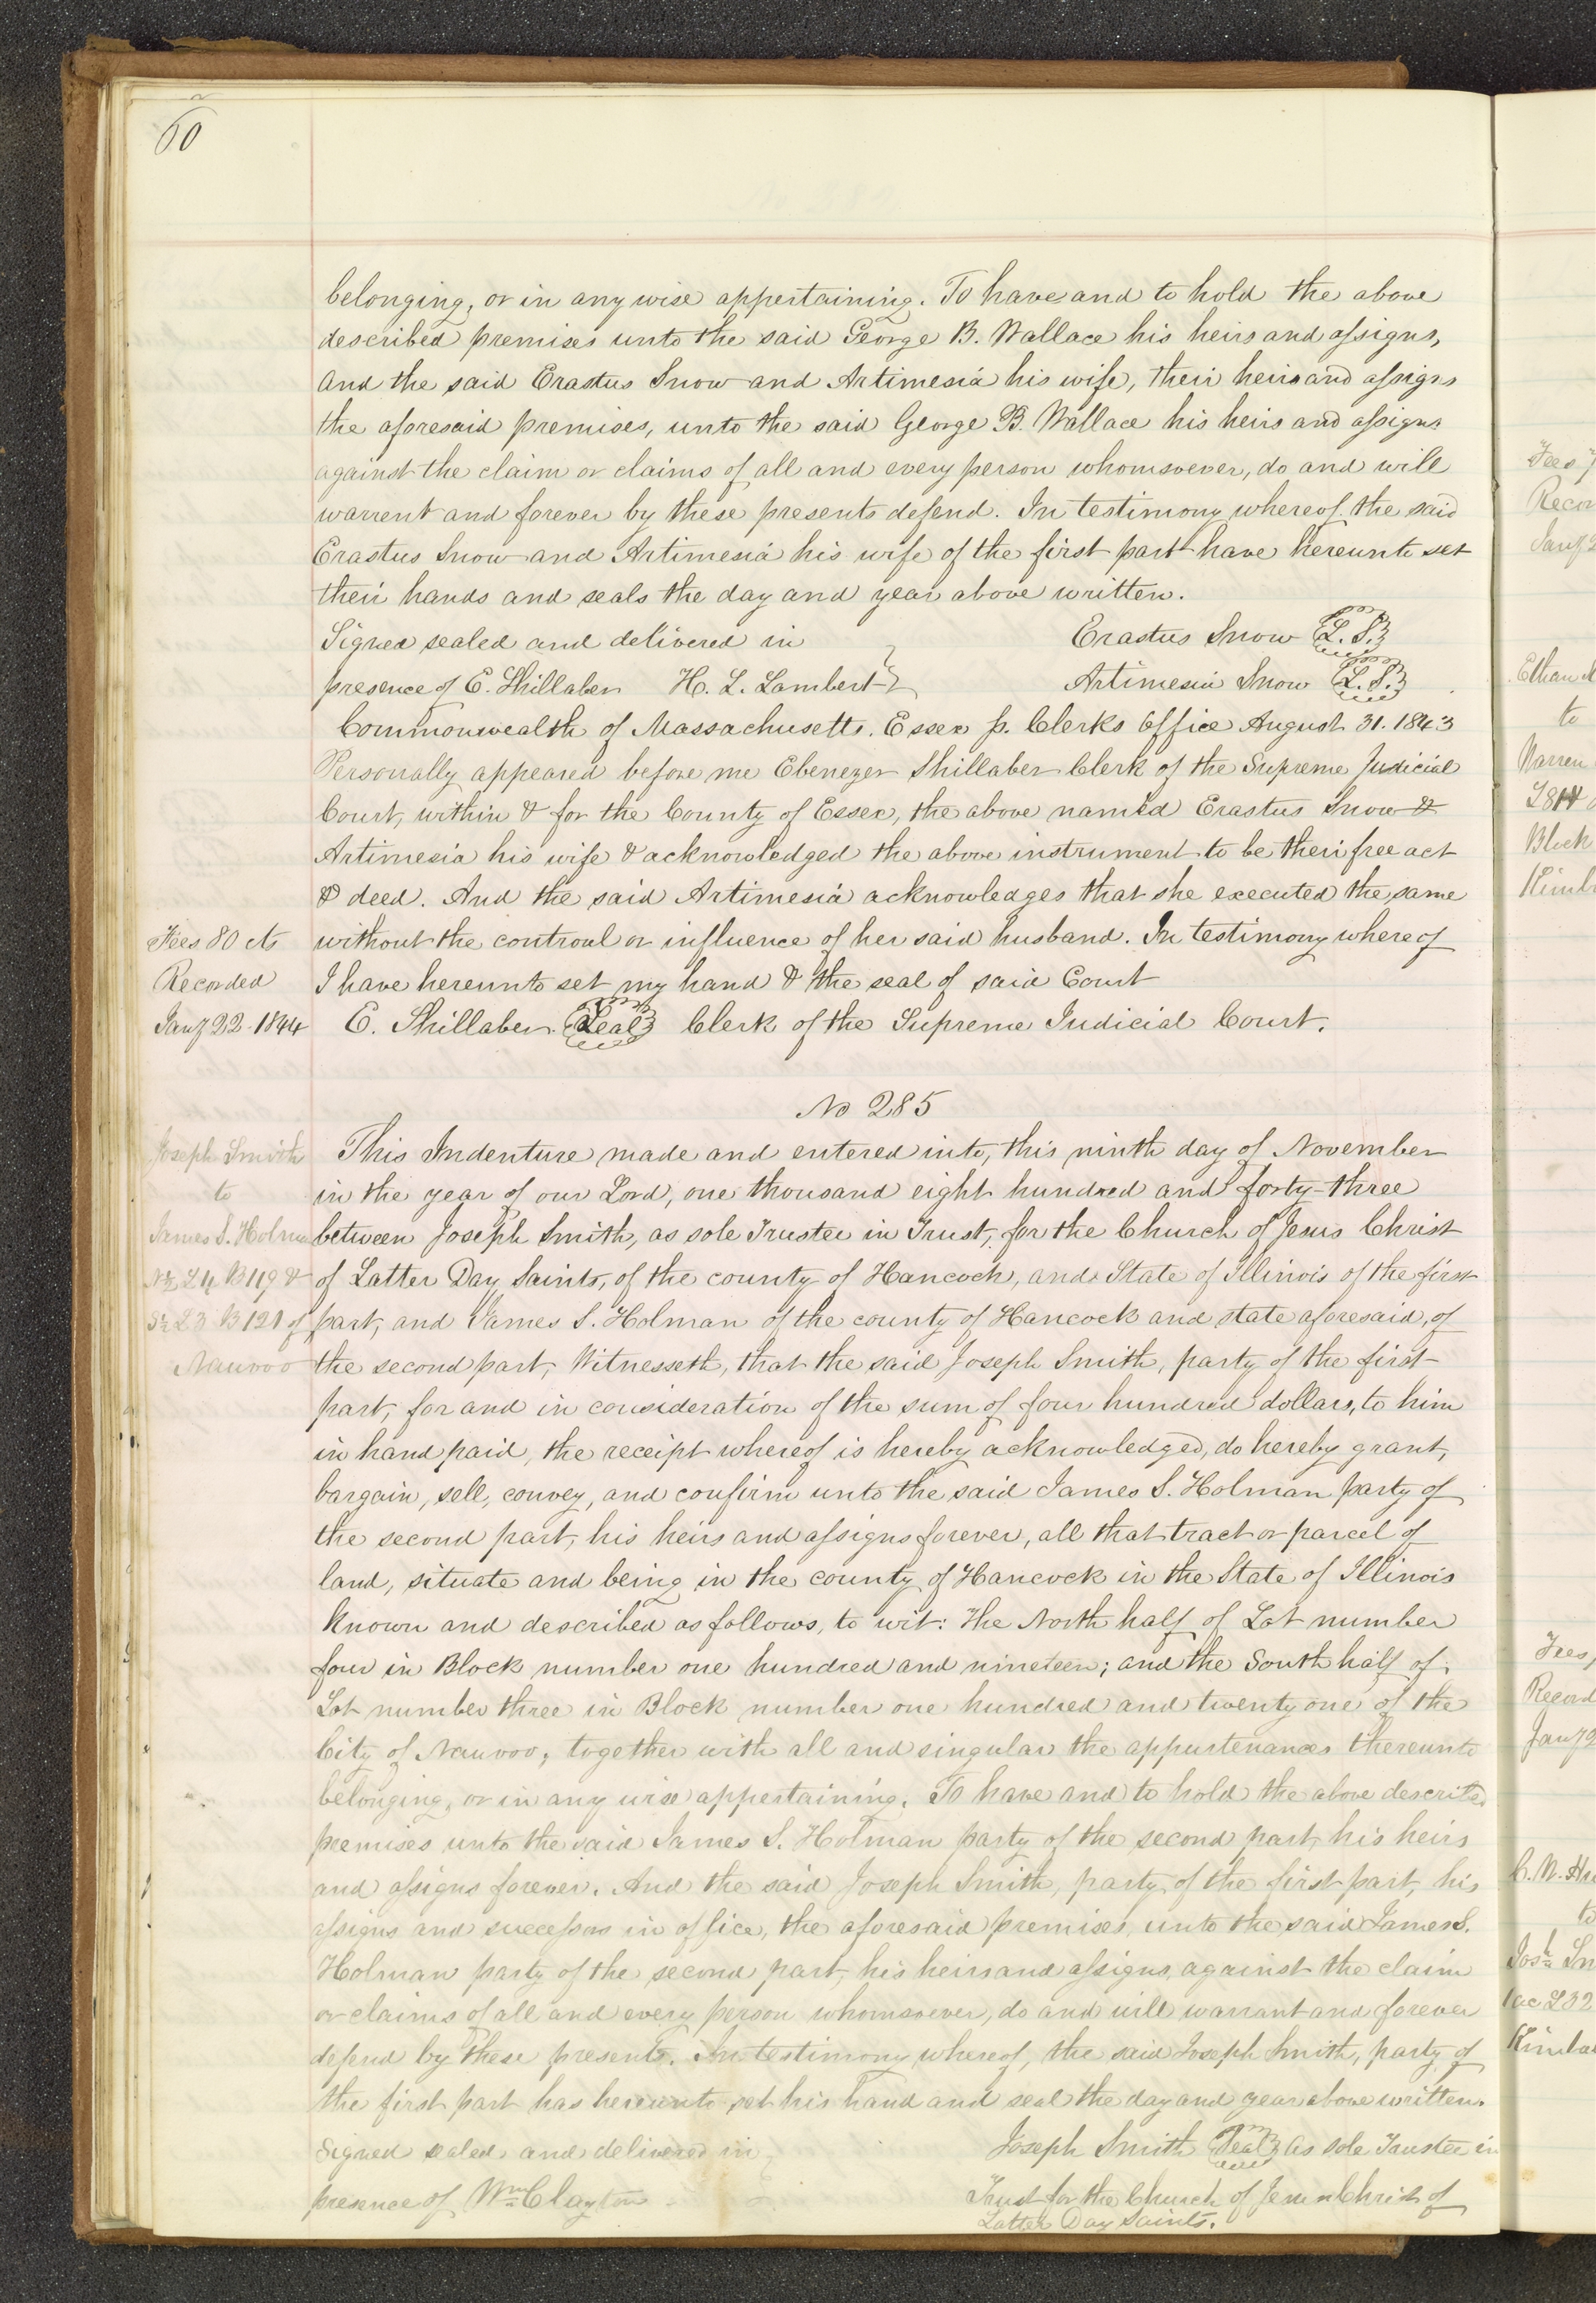 60
belonging, or in any wise appertaining. To have and to hold the above
described premises unto the said George B. Wallace his heirs and assigns,
And the said Erastus Snow and Artimesia his wife, their heirs and assigns
the aforesaid premises, unto the said George B. Wallace his heirs and assigns
against the claim or claims of all and every person whomsoever, do and will
warrent and forever by these presents defend. In testimony whereof the said
Erastus Snow and Artimesia his wife of the first part have hereunto set
their hands and seals the day and year above written.
Signed sealed and delivered in Erastus Snow L.S.
presence of E. Shillaber H. L. Lambert Artimesia Snow L.S.
Commonwealth of Massachusetts. Essex ss. Clerks Office August 31. 1843
Personally appeared before me Ebenezer Shillaber Clerk of the Supreme Judicial
Court, within & for the County of Essex, the above named Erastus Snow &
Artimesia his wife & acknowledged the above instrument to be their free act
& deed. And the said Artimesia acknowledges that she executed the same
without the controul or influence of her said husband. In testimony whereof
I have hereunto set my hand & the seal of said Court
E. Shillaber Seal Clerk of the Supreme Judicial Court.
Fees 80 cts
Recorded
Jany 22. 1844
No 285
Joseph Smith
to
James S. Holman
N½ L4 B119 &
S½ L3 B121 of
Nauvoo
This Indenture made and entered into, this ninth day of November
in the year of our Lord, one thousand eight hundred and forty-three
between Joseph Smith, as sole Trustee in Trust, for the Church of Jesus Christ
of Latter Day Saints, of the county of Hancock, and State of Illinois of the first
part, and James S. Holman of the county of Hancock and state aforesaid, of
the second part, Witnesseth, that the said Joseph Smith, party of the first
part, for and in consideration of the sum of four hundred dollars, to him
in hand paid, the receipt whereof is hereby acknowledged, do hereby grant,
bargain, sell, convey, and confirm unto the said James S. Holman party of
the second part, his heirs and assigns forever, all that tract or parcel of
land, situate and being in the county of Hancock in the State of Illinois
known and described as follows, to wit: The North half of Lot number
four in Block number one hundred and nineteen; and the South half of
Lot number three in Block number one hundred and twenty one of the
City of Nauvoo, together with all and singular the appurtenances thereunto
belonging, or in any wise appertaining. To have and to hold the above described
premises unto the said James S. Holman party of the second part, his heirs
and assigns forever. And the said Joseph Smith, party of the first part, his
assigns and successors in office, the aforesaid premises, unto the said James S.
Holman party of the second part, his heirs and assigns, against the claim
or claims of all and every person whomsoever, do and will warrant and forever
defend by these presents. In testimony whereof, the said Joseph Smith, party of
the first part has hereunto set his hand and seal the day and year above written.
Signed sealed and delivered in Joseph Smith Seal As sole Trustee in
presence of Wm Clayton Trust for the Church of Jesus Christ of
Latter Day Saints.
Fees
Recor
Jany 2
Ethan
to
Warren
Block
Kimb
Fees
Record
Jany 2
to
Josh Sm
Kimba